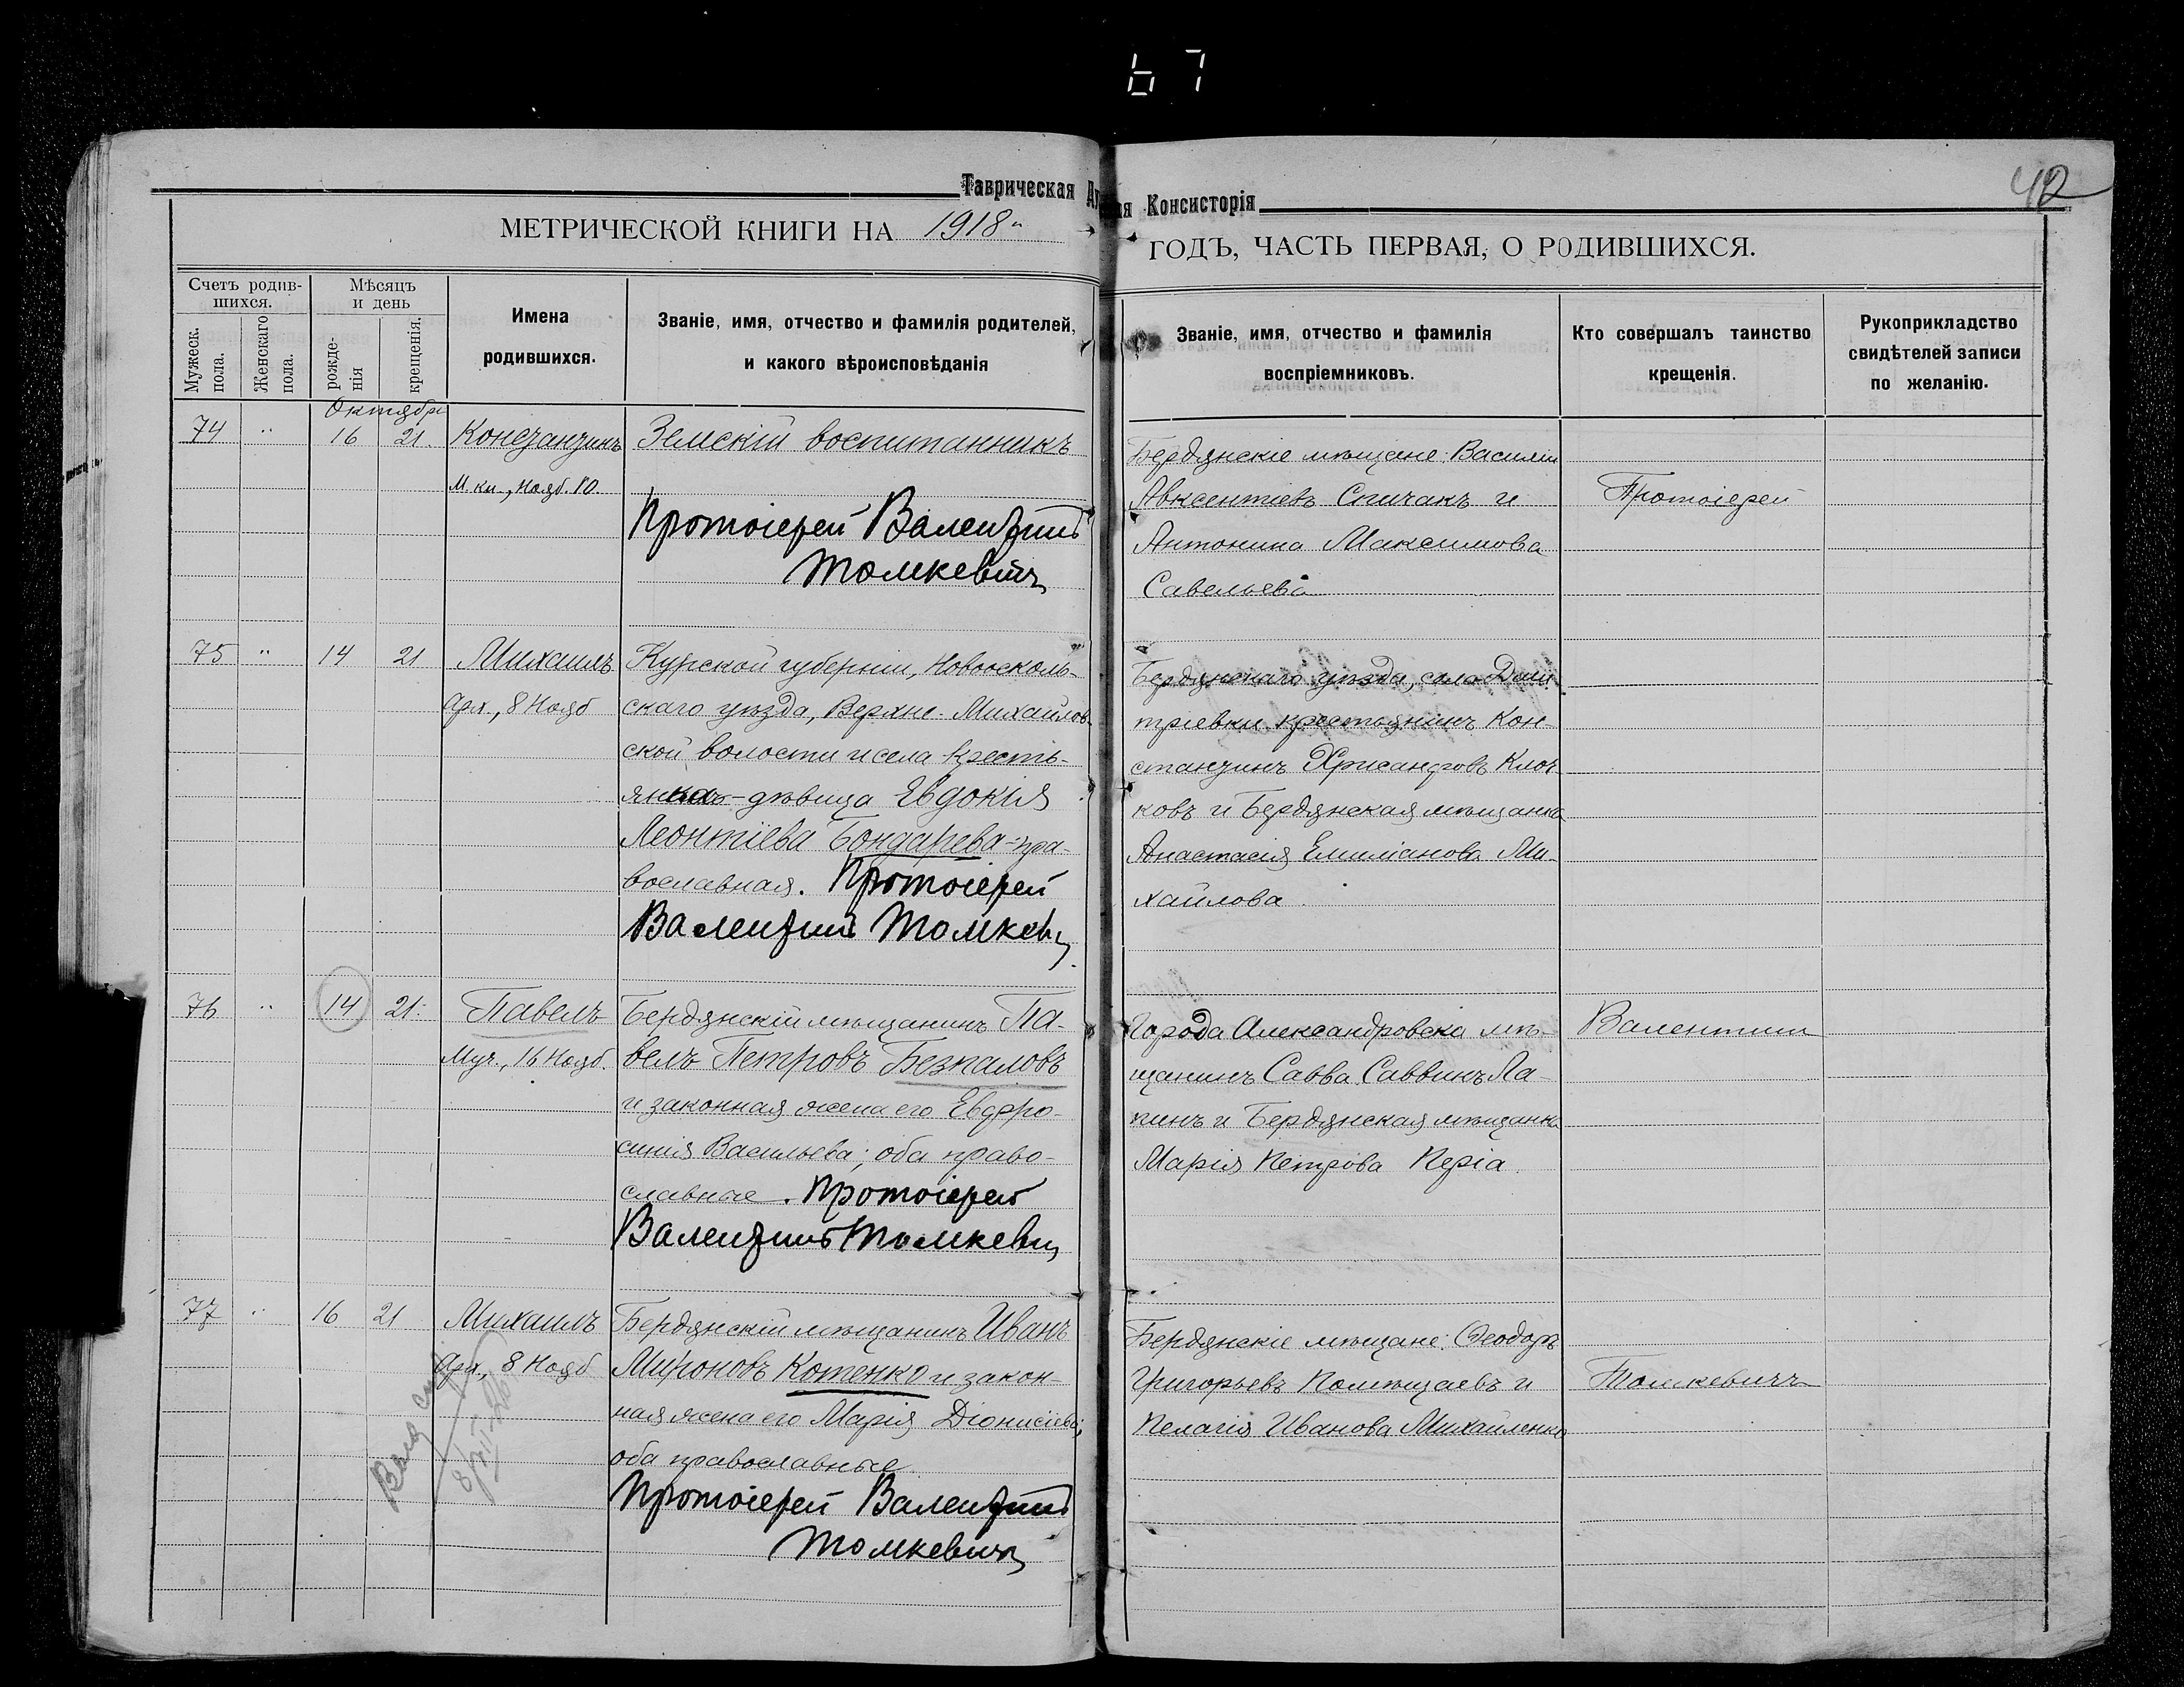 67
42
Таврическая
Консисторія
МЕТРИЧЕСКОЙ КНИГИ НА 1918
ГОДЪ, ЧАСТЬ ПЕРВАЯ, О РОДИВШИХСЯ.
Счетъ родив-
шихся.
Мужеск. пола.
Женскаго пола.
Мѣсяцъ
и день
рожде-
нія
крещенія.
Имена
родившихся.
Званіе, имя, отчество и фамилія родителей,
и какого вѣроисповѣданія
Званіе, имя, отчество и фамилія
воспріемниковъ.
Кто совершалъ таинство
крещенія.
Рукоприкладство
свидѣтелей записи
по желанію.
Октября
74 " 16 21. Константинъ Земскій воспитанникъ
М кн., Нояб. 10.
Протоіерей Валентинъ
Томкевичъ
Бердянскіе мѣщане: Василій
Авксентіевъ Спичакъ и
Антонина Максимова
Савельева
Протоіерей
75 " 14 21 Михаилъ Курской губерніи, Новоосколь-
Арх., 8 Нояб скаго уѣзда, Верхне-Михайлов-
ской волости и села кресть-
янка-дѣвица Евдокія
Леонтіева Бондарева - пра-
вославная. Протоіерей
Валентинъ Томкевичъ
Бердянскаго уѣзда, села Дми-
тріевки крестьянинъ Кон-
стантинъ Хрисанфовъ Клоч-
ковъ и Бердянская мѣщанка
Анастасія Емиліанова Ми-
хайлова.
76 " 14 21. Павелъ Бердянскій мѣщанинъ Па-
Муч., 16 Нояб. велъ Петровъ Безпаловъ
и законная жена его Евфро-
синія Васильева; оба право-
славные. Протоіерей
Валентинъ Томкевичъ
Города Александровска мѣ-
щанинъ Савва Саввинъ Ла-
пинъ и Бердянская мѣщанка
Марія Петрова Періа.
Валентинъ
77 " 16 21 Михаилъ Бердянскій мѣщанинъ Иванъ
Арх., 8 Нояб Мироновъ Котенко и закон-
ная жена его Марія Діонисіева;
оба православные
Протоіерей Валентинъ
Томкевичъ
Бердянскіе мѣщане: Ѳеодоръ
Григорьевъ Помѣщаевъ и
Пелагія Иванова Михайленко
Томкевичъ